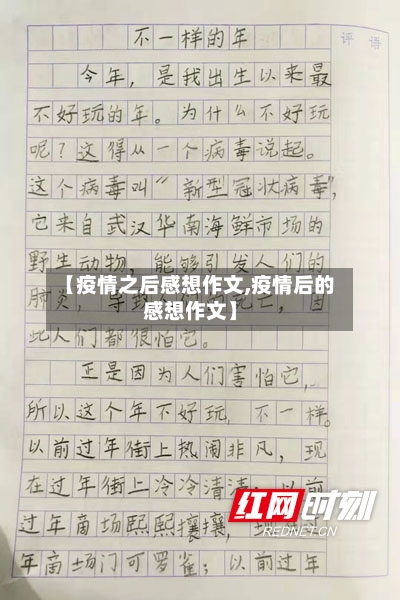 不一样的年
评语
今年，是我出生以来最
不好玩的年。为什么不好玩
呢？这得从一个病毒说起。
这个病毒叫“新型冠状病毒”，
它来自武汉华南海鲜市场的
野生动物，能够引发人们的
【疫情之后感想作文,疫情后的
感想作文】
肺炎，导致人们死亡，因
此人们都很怕它。
正是因为人们害怕它，
所以这个年不好玩，不一样。
以前过年街上热闹非凡，现
在过年街上冷冷清清；以前
过年商场熙熙攘攘，
年商场门可罗雀；以前过年
红网时刻
REDNET.CN